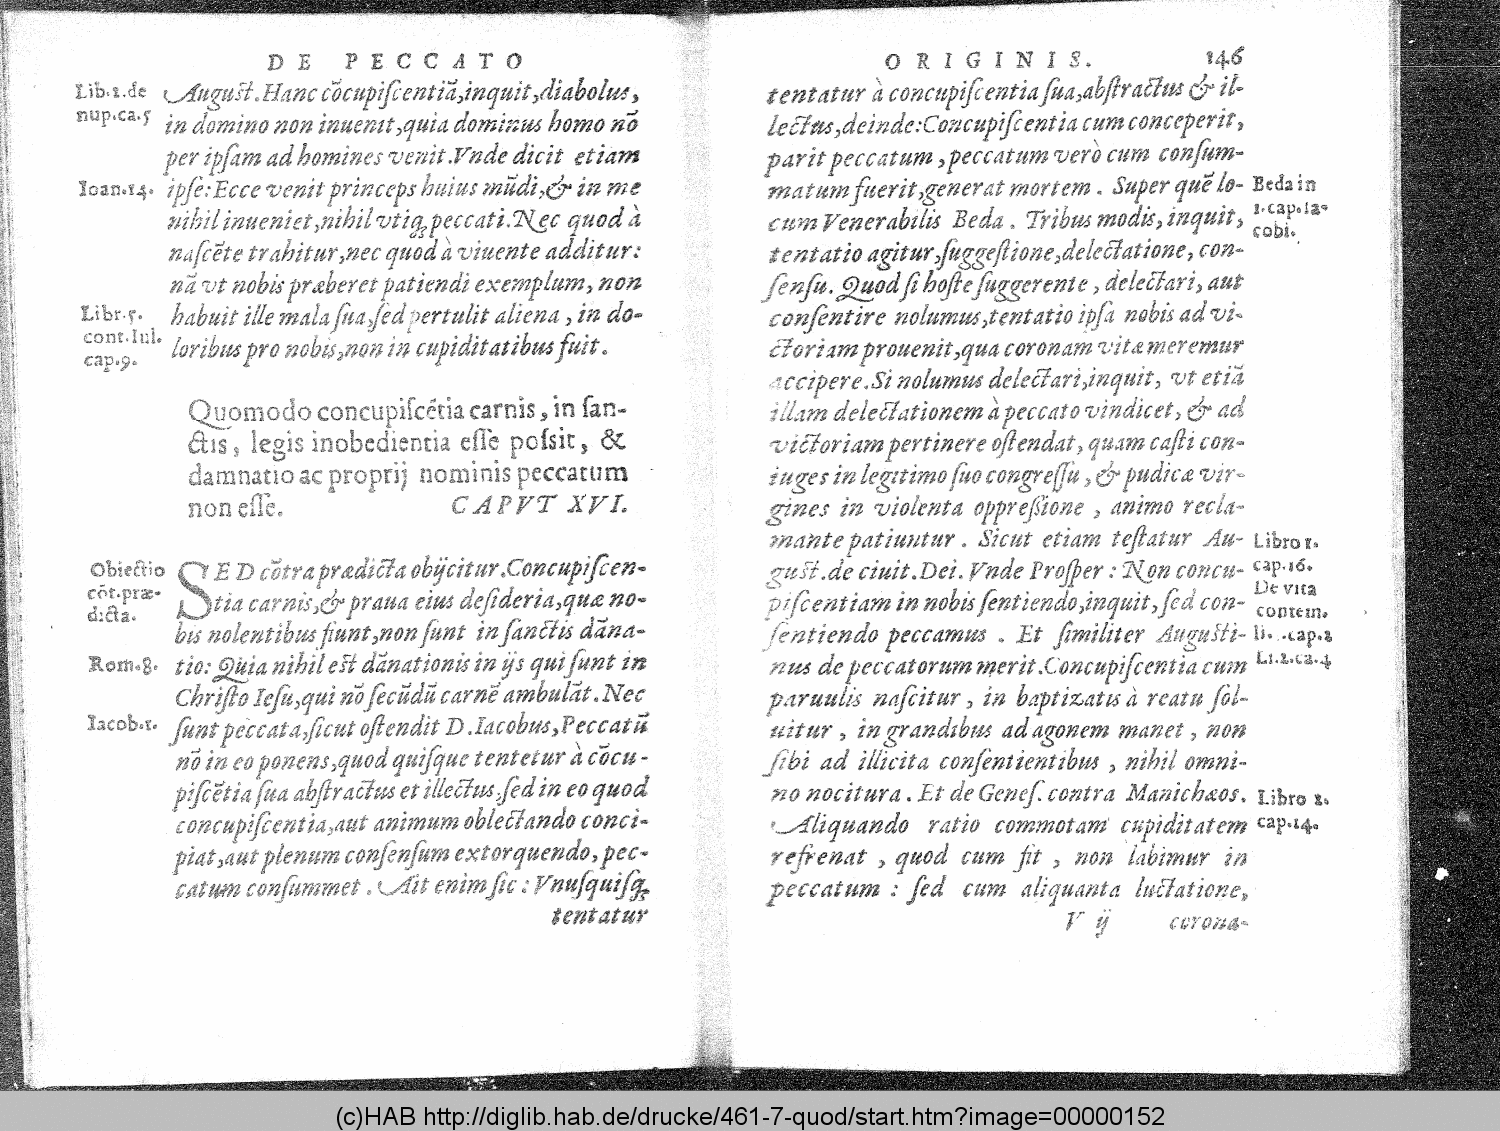 DE PECCATO
Lib.2.de
nup.ca.5
Auguſt.Hanc cōcupiſcentiā,inquit,diabolus,
in domino non inuenit,quia dominus homo nō
per ipſam ad homines venit.Vnde dicit etiam
Ioan.14.
ipſe:Ecce venit princeps huius mūdi,& in me
nihil inueniet,nihil vtiq; peccati.Nec quod à
naſcēte trahitur,nec quod à viuente additur:
nā vt nobis præberet patiendi exemplum, non
Libr.5.
cont.Iul.
cap.9.
habuit ille mala ſua,ſed pertulit aliena , in do-
loribus pro nobis,non in cupiditatibus fuit.
Quomodo concupiſcētia carnis, in ſan-
ctis, legis inobedientia eſſe poſsit, &
damnatio ac proprij nominis peccatum
non eſſe. CAPVT XVI.
Obiectio
cōt.præ-
dicta.
SED cōtra prædicta obijcitur.Concupiſcen-
tia carnis,& praua eius deſideria,quæ no-
bis nolentibus fiunt,non ſunt in ſanctis dāna-
Rom.8.
tio: Quia nihil eſt dānationis in ijs qui ſunt in
Chriſto Ieſu,qui nō ſecūdū carnē ambulāt.Nec
Iacob.1.
ſunt peccata,ſicut oſtendit D.Iacobus,Peccatū
nō in eo ponens,quod quiſque tentetur à cōcu-
piſcētia ſua abſtractus et illectus,ſed in eo quod
concupiſcentia,aut animum oblectando conci-
piat,aut plenum conſenſum extorquendo, pec-
catum conſummet . Ait enim ſic : Vnuſquiſq;
tentatur
ORIGINIS. 146
tentatur à concupiſcentia ſua,abſtractus & il-
lectus,deinde:Concupiſcentia cum conceperit,
parit peccatum ,peccatum verò cum conſum-
matum fuerit,generat mortem . Super quē lo-
Beda in
1.cap.Ia-
cobi.
cum Venerabilis Beda . Tribus modis, inquit,
tentatio agitur,ſuggeſtione,delectatione, con-
ſenſu. Quod ſi hoſte ſuggerente , delectari, aut
conſentire nolumus,tentatio ipſa nobis ad vi-
ctoriam prouenit,qua coronam vitæ meremur
accipere.Si nolumus delectari,inquit, vt etiā
illam delectationem à peccato vindicet, & ad
victoriam pertinere oſtendat, quam caſti con-
iuges in legitimo ſuo congreſſu , & pudicæ vir-
gines in violenta oppreſſione , animo recla-
mante patiuntur . Sicut etiam teſtatur Au-
Libro 1.
cap.16.
De vita
contem.
guſt.de ciuit.Dei. Vnde Proſper : Non concu-
piſcentiam in nobis ſentiendo,inquit, ſed con-
ſentiendo peccamus . Et ſimiliter Auguſti-
Li.2.ca.4
nus de peccatorum merit.Concupiſcentia cum
paruulis naſcitur , in baptizatis à reatu ſol-
uitur , in grandibus ad agonem manet , non
ſibi ad illicita conſentientibus , nihil omni-
no nocitura . Et de Geneſ. contra Manichæos.
Libro 2.
cap.14.
Aliquando ratio commotam cupiditatem
refrenat , quod cum fit , non labimur in
peccatum : ſed cum aliquanta luctatione,
V ij corona-
(c)HAB http://diglib.hab.de/drucke/461-7-quod/start.htm?image=00000152